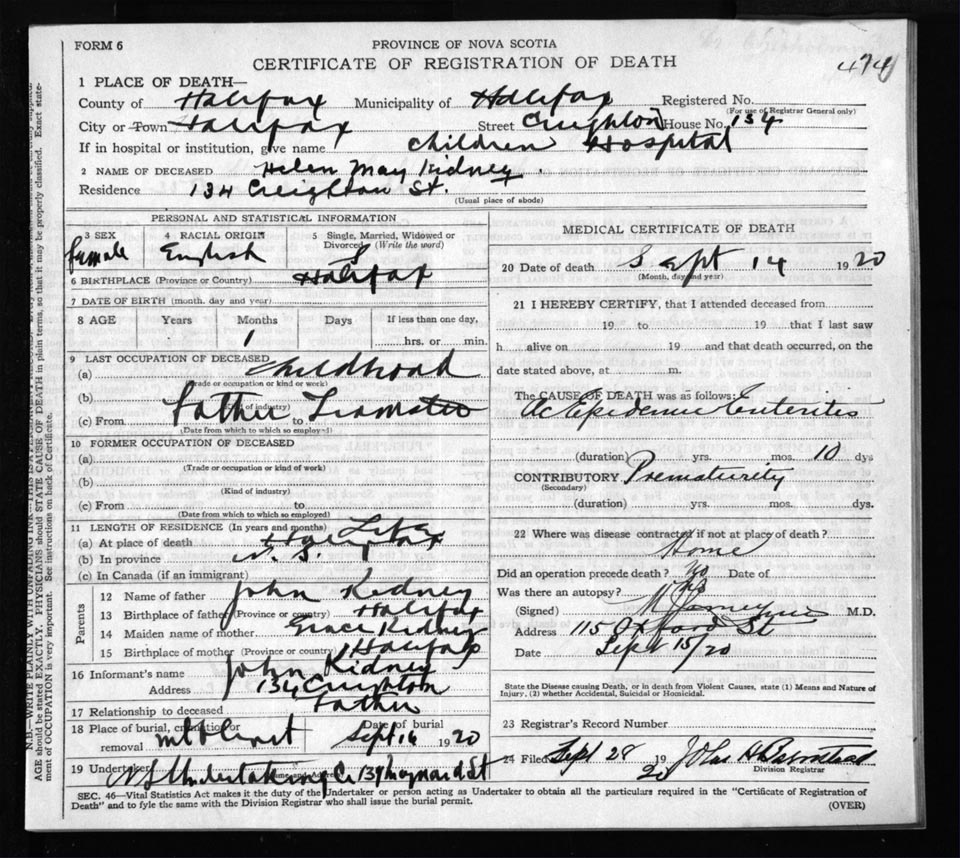 FORM 6
PROVINCE OF NOVA SCOTIA
CERTIFICATE OF REGISTRATION OF DEATH
474
1 PLACE OF DEATH—
County of Halifax Municipality of Halifax Registered No.
(For use of Registrar General only)
City or Town Halifax Street Creighton House No. 134
If in hospital or institution, give name Children Hospital
2 NAME OF DECEASED Helen May Kidney
Residence 134 Creighton St.
(Usual place of abode)
PERSONAL AND STATISTICAL INFORMATION
3 SEX 4 RACIAL ORIGIN 5 Single, Married, Widowed or Divorced (Write the word)
female English S
6 BIRTHPLACE (Province or Country) Halifax
7 DATE OF BIRTH (month, day and year)
8 AGE Years Months Days If less than one day,
1 hrs. or min.
9 LAST OCCUPATION OF DECEASED
(a) Childhood
(Trade or occupation or kind or work)
(b)
(Kind of industry)
(c) From father to Teamster
(Date from which to which so employed)
10 FORMER OCCUPATION OF DECEASED
(a)
(Trade or occupation or kind of work)
(b)
(Kind of industry)
(c) From to
(Date from which to which so employed)
11 LENGTH OF RESIDENCE (In years and months) Life
(a) At place of death Halifax
(b) In province N. S.
(c) In Canada (if an immigrant)
Parents
12 Name of father John Kidney
13 Birthplace of father (Province or country) Halifax
14 Maiden name of mother Grace Kidney
15 Birthplace of mother (Province or country) Halifax
16 Informant's name John Kidney
Address 134 Creighton
17 Relationship to deceased Father
18 Place of burial, cremation or removal Mt Olivet Date of burial Sept 16 1920
19 Undertaker N S Undertaking Co 134 Maynard St
(Name and Address)
MEDICAL CERTIFICATE OF DEATH
20 Date of death Sept 14 1920
(Month, day and year)
21 I HEREBY CERTIFY, that I attended deceased from
19 to 19 that I last saw
h alive on 19 and that death occurred, on the
date stated above, at m.
The CAUSE OF DEATH was as follows:
Ac Epidemic Enteritis
(duration) yrs. mos. 10 dys
CONTRIBUTORY Prematurity
(Secondary)
(duration) yrs. mos. dys.
22 Where was disease contracted if not at place of death?
Home
Did an operation precede death? No Date of
Was there an autopsy? No
(Signed) M.D.
Address 115 Oxford St
Date Sept 15/20
State the Disease causing Death, or in death from Violent Causes, state (1) Means and Nature of
Injury, (2) whether Accidental, Suicidal or Homicidal.
23 Registrar's Record Number
24 Filed Sept 28 1920 John H Barnstead
Division Registrar
SEC. 46—Vital Statistics Act makes it the duty of the Undertaker or person acting as Undertaker to obtain all the particulars required in the "Certificate of Registration of
Death" and to fyle the same with the Division Registrar who shall issue the burial permit.
(OVER)
AGE should be stated EXACTLY. PHYSICIANS should STATE CAUSE OF DEATH in plain terms, so that it may be properly classified. Exact state-
ment of OCCUPATION is very important. See instructions on back of Certificate.